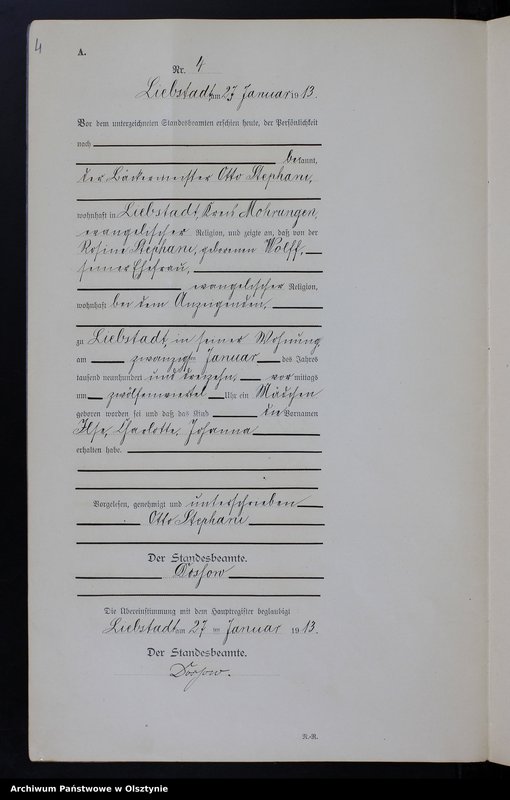 4
A.
Nr. 4
Liebstadt am 27 Januar 1913.
Vor dem unterzeichneten Standesbeamten erschien heute, der Persönlichkeit
nach
bekannt,
der Bäckermeister Otto Stephani,
wohnhaft in Liebstadt, Kreis Mohrungen,
evangelischer Religion, und zeigte an, daß von der
Rosine Stephani, geborenen Wolff,
seiner Ehefrau,
evangelischer Religion,
wohnhaft bei dem Anzeigenden,
zu Liebstadt, in seiner Wohnung
am zwanzigsten Januar des Jahres
tausend neunhundert und dreizehn, vormittags
um Uhr ein Mädchen
geboren worden sei und daß das Kind die Vornamen
Ilse, Charlotte, Johanna
erhalten habe.
Vorgelesen, genehmigt und unterschrieben
Otto Stephani
Der Standesbeamte.
Die Übereinstimmung mit dem Hauptregister beglaubigt
Liebstadt am 27 ten Januar 1913.
Der Standesbeamte.
N.-R.
Archiwum Państwowe w Olsztynie